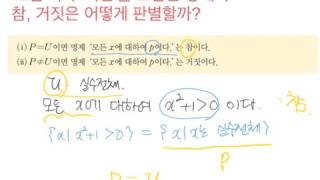 참, 거짓은 어떻게 판별할까?
(i) P=U이면 명제 '모든 x에 대하여 p이다.'는 참이다.
(ii) P≠U이면 명제 '모든 x에 대하여 p이다.'는 거짓이다.
U 실수전체
모든 x에 대하여 x²+1>0 이다. 참
{x|x²+1>0} = {x|x는 실수전체}
P